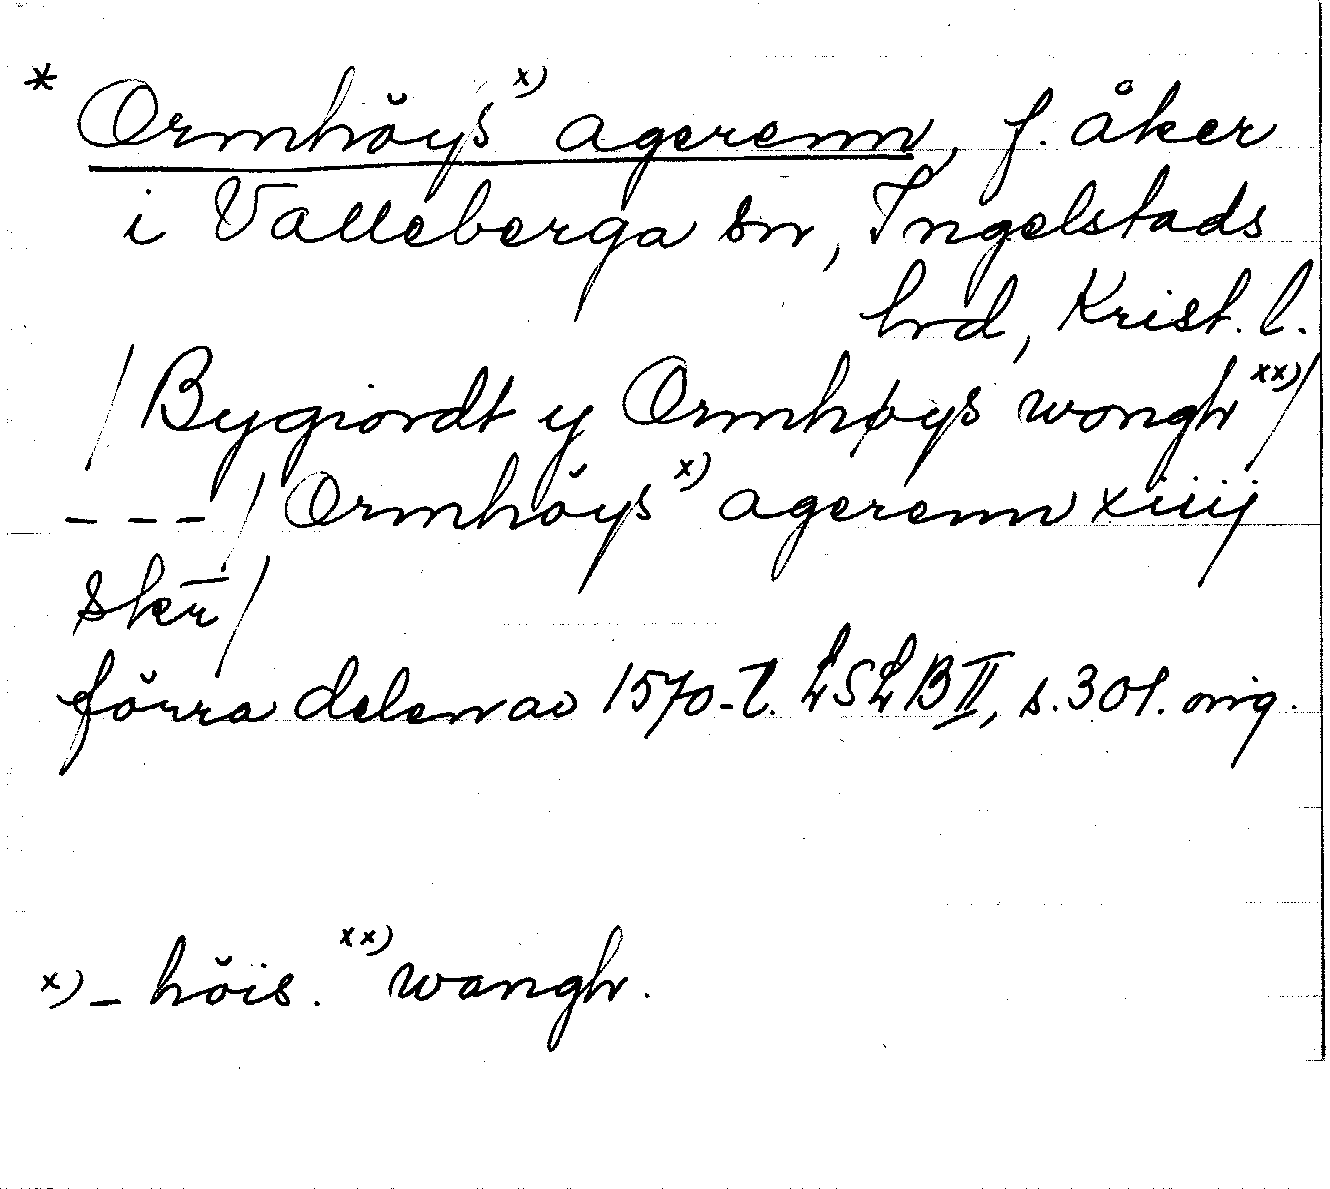 * Ormhŏys x) agerenn, f. åker
i Valleberga sn, Ingelstads
hrd, Krist. l.
/ Bygiordt y Ormhøys wongh xx) /
--- / Ormhŏys x) agerenn xiiij
skr̄ /
förra delen av 1570-t. LSLB II, s. 301. orig.
x) - hŏis. xx) wangh.